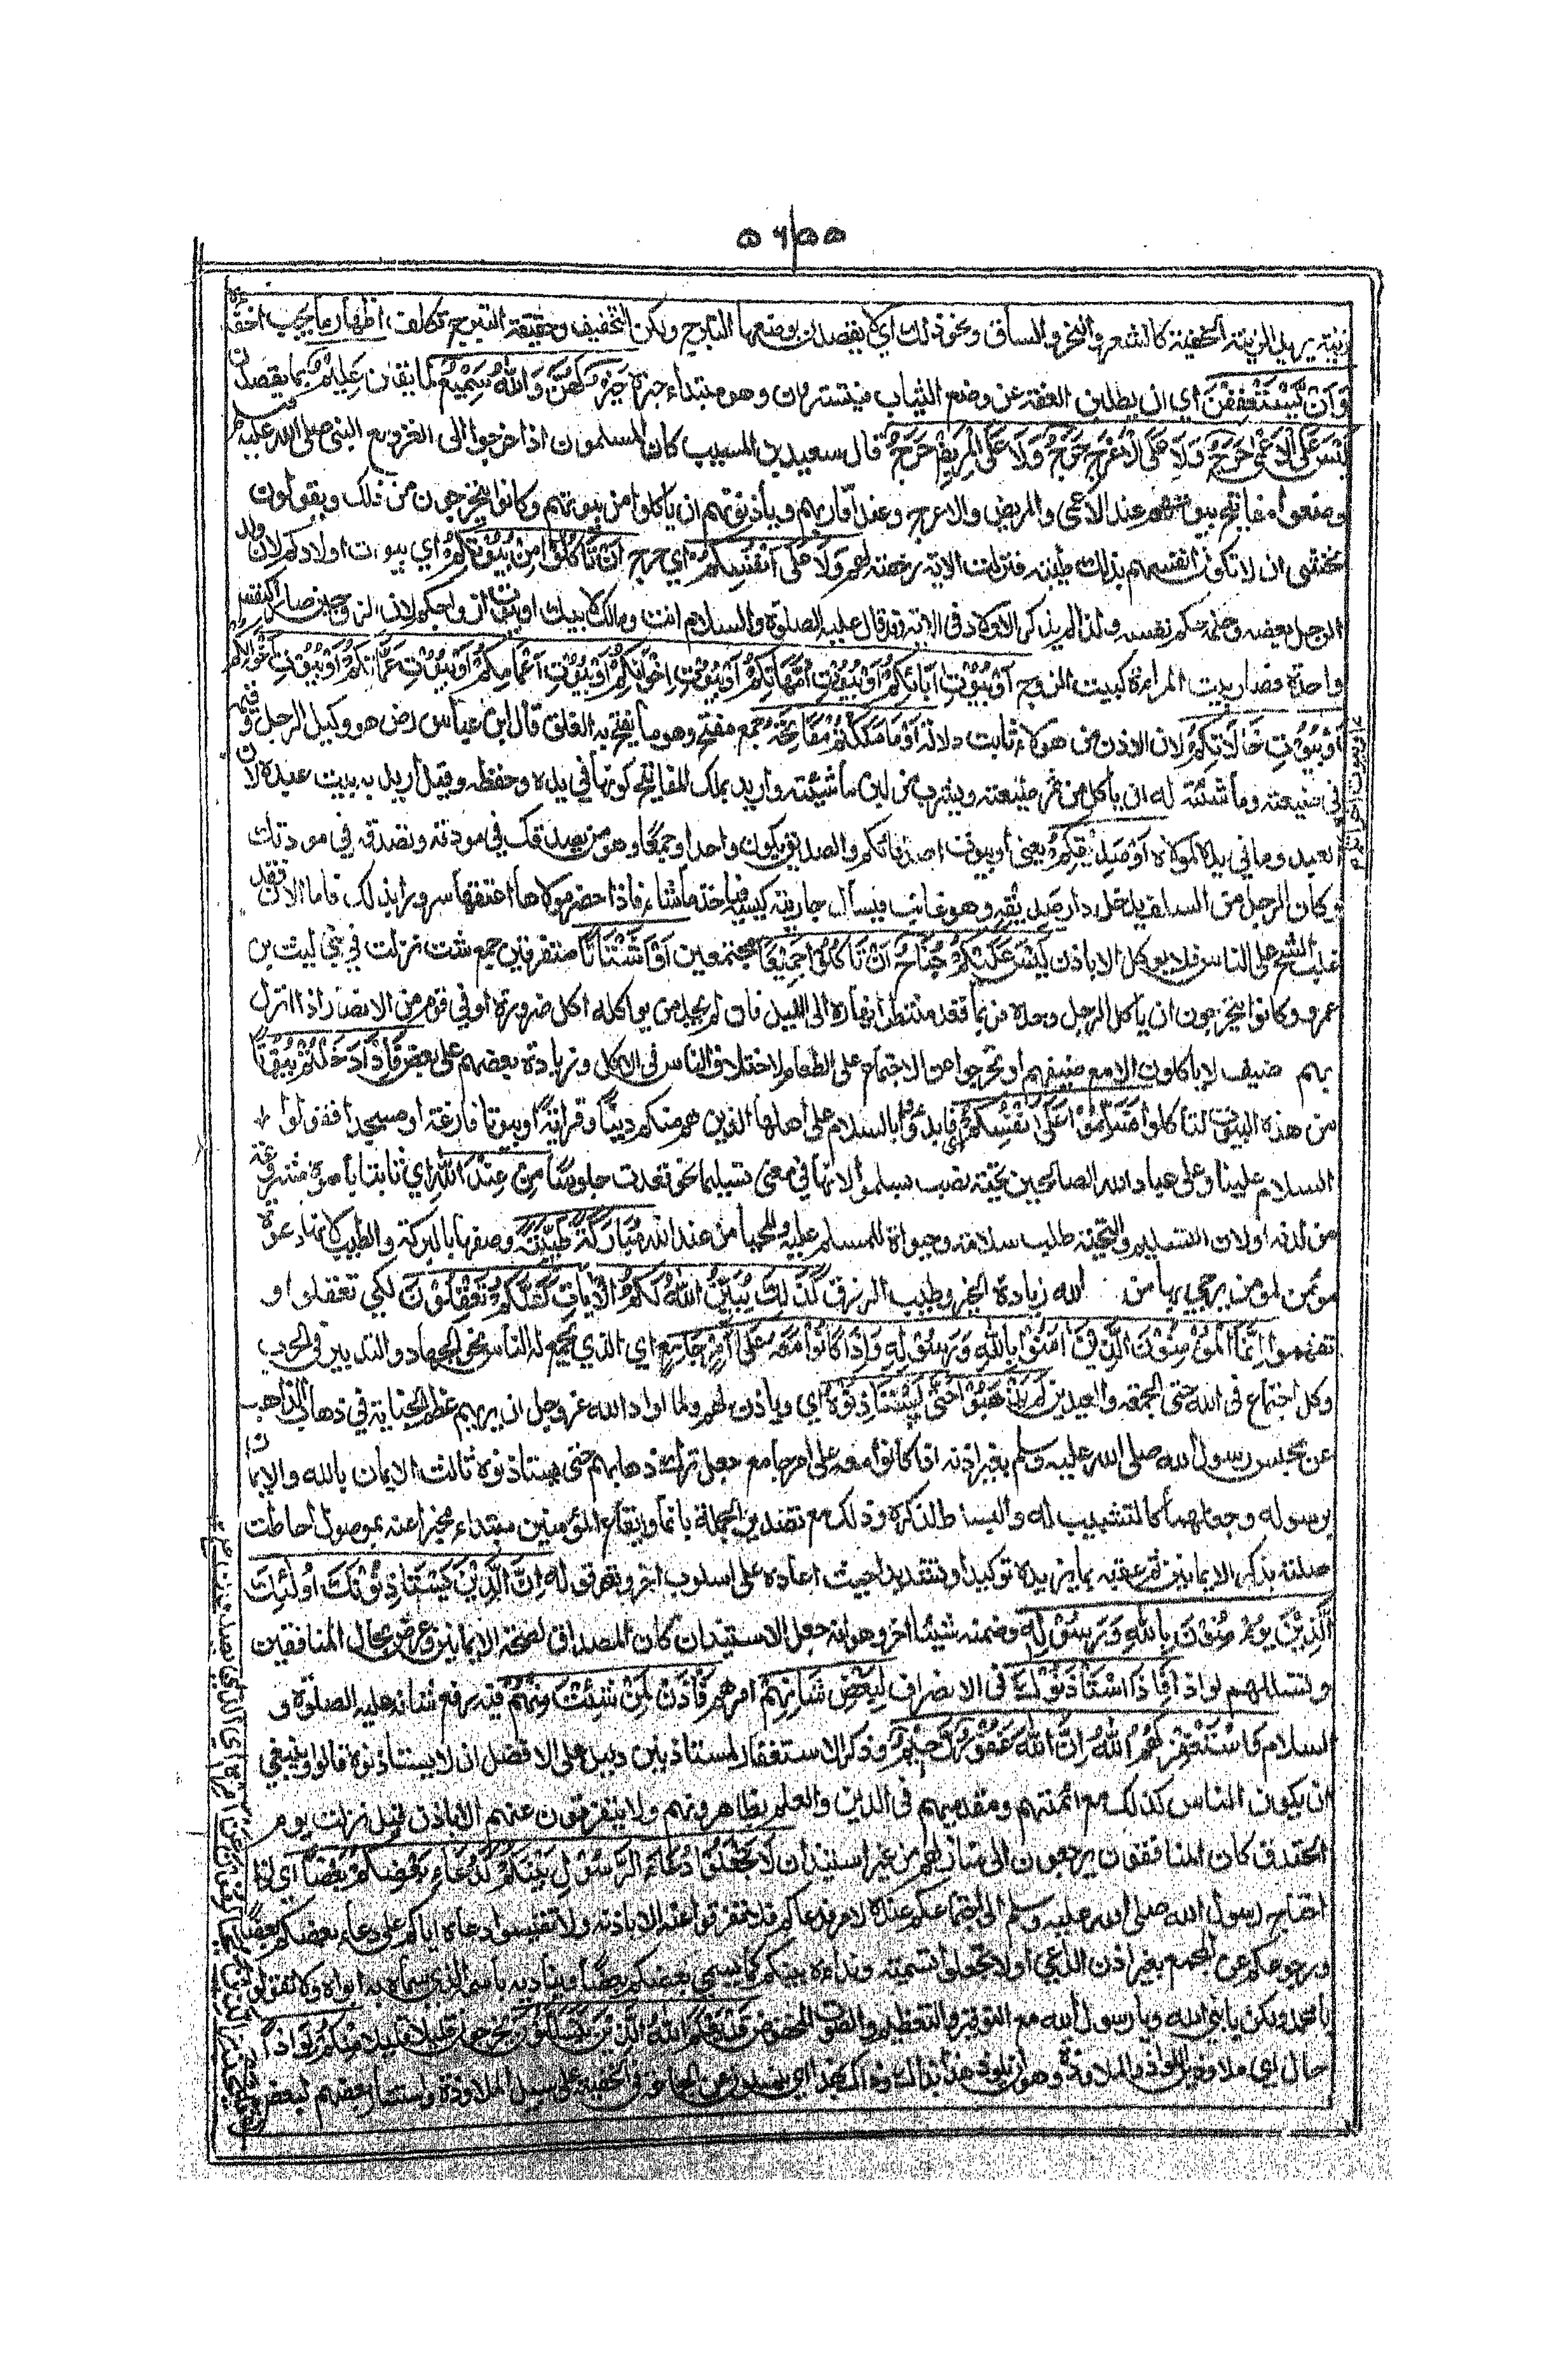 زينة يريد الزينة الخفية كالشعر والنحر والساق ونحو ذلك اي لا يقصدن بوضعها التبرج ولكن التخفيف وحقيقة التبرج تكلف اظهار ما يجب اخفاؤه
وَاَنْ يَّسْتَعْفِفْنَ اي ان يطلبن العفة عن وضع الثياب فيستترن وهو مبتداء خبره خَيْرٌ لَّهُنَّ وَاللّٰهُ سَمِيْعٌ لما يقلن عَلِيْمٌ بما يقصدن
لَيْسَ عَلَى الْاَعْمٰى حَرَجٌ وَّلَا عَلَى الْاَعْرَجِ حَرَجٌ وَّلَا عَلَى الْمَرِيْضِ حَرَجٌ قال سعيد بن المسيب كان المسلمون اذا خرجوا الى الغزو مع النبي صلى الله عليه وسلم
وضعوا مفاتيح بيوتهم عند الاعمى والمريض والاعرج وعند اقاربهم ويأذنونهم ان ياكلوا من بيوتهم وكانوا يتحرجون من ذلك ويقولون
نخشى ان لا تكون انفسهم بذلك طيبة فنزلت الاية رخصة لهم وَلَا عَلٰى اَنْفُسِكُمْ اي حرج اَنْ تَأْكُلُوْا مِنْ بُيُوْتِكُمْ اي بيوت اولادكم لان ولد
الرجل بعضه وحكمه حكم نفسه ولذا لم يذكر الاولاد في الاية وقد قال عليه الصلوة والسلام انت ومالك لابيك او بيوت ازواجكم لان الزوجين صارا كنفس
واحدة فصار بيت المرأة كبيت الزوج اَوْ بُيُوْتِ اٰبَائِكُمْ اَوْ بُيُوْتِ اُمَّهَاتِكُمْ اَوْ بُيُوْتِ اِخْوَانِكُمْ اَوْ بُيُوْتِ اَعْمَامِكُمْ اَوْ بُيُوْتِ عَمَّاتِكُمْ اَوْ بُيُوْتِ اَخْوَالِكُمْ
اَوْ بُيُوْتِ خَالَاتِكُمْ لان الاذن من هولاء ثابت دلالة اَوْ مَا مَلَكْتُمْ مَّفَاتِحَهٗ جمع مفتح وهو ما يفتح به الغلق قال ابن عباس رض هو وكيل الرجل وقيمه
في ضيعته وماشيته له ان ياكل من ثمر ضيعته ويشرب من لبن ماشيته واريد بملك المفاتيح كونها في يده وحفظه وقيل اريد به بيت عبده لان
العبد وما في يده لمولاه اَوْ صَدِيْقِكُمْ يعني او بيوت اصدقائكم والصديق يكون واحدا وجمعا وهو من يصدقك في مودته وتصدقه في مودتك
وكان الرجل من السلف يدخل دار صديقه وهو غائب فيسأل جاريته كيسه فياخذ ما شاء فاذا حضر مولاها اعتقها سرورا بذلك فاما الان فقد
غلب الشح على الناس فلا يوكل الا باذن لَيْسَ عَلَيْكُمْ جُنَاحٌ اَنْ تَأْكُلُوْا جَمِيْعًا مجتمعين اَوْ اَشْتَاتًا متفرقين جمع شت نزلت في بني ليث بن
عمرو وكانوا يتحرجون ان ياكل الرجل وحده فربما قعد منتظرا نهاره الى الليل فان لم يجد من يواكله اكل ضرورة او في قوم من الانصار اذا نزل
بهم ضيف لا ياكلون الا مع ضيفهم او تحرجوا عن الاجتماع على الطعام لاختلاف الناس في الاكل وزيادة بعضهم على بعض فَاِذَا دَخَلْتُمْ بُيُوْتًا
من هذه البيوت لتاكلوا فَسَلِّمُوْا عَلٰى اَنْفُسِكُمْ اي فابدؤا بالسلام على اهلها الذين هم منكم دينا وقرابة او بيوتا فارغة او مسجدا فقولوا
السلام علينا وعلى عباد الله الصالحين تحية نصب بسلموا لانها في معنى تسليما نحو قعدت جلوسا مِنْ عِنْدِ اللّٰهِ اي ثابتة بامره مشروعة
من لدنه او لان التسليم والتحية طلب سلامة وحيوة للمسلم عليه والمحيا من عند الله مُبَارَكَةً طَيِّبَةً وصفها بالبركة والطيب لانها دعوة
مؤمن لمؤمن يرجى بها من الله زيادة الخير وطيب الرزق كَذٰلِكَ يُبَيِّنُ اللّٰهُ لَكُمُ الْاٰيَاتِ لَعَلَّكُمْ تَعْقِلُوْنَ لكي تعقلوا و
تفهموا اِنَّمَا الْمُؤْمِنُوْنَ الَّذِيْنَ اٰمَنُوْا بِاللّٰهِ وَرَسُوْلِهٖ وَاِذَا كَانُوْا مَعَهٗ عَلٰى اَمْرٍ جَامِعٍ اي الذي يجمع له الناس نحو الجهاد والتدبير في الحرب
وكل اجتماع في الله حتى الجمعة والعيدين لَمْ يَذْهَبُوْا حَتّٰى يَسْتَأْذِنُوْهُ اي ويأذن لهم ولما اراد الله عز وجل ان يريهم عظم الجناية في ذهاب الذاهب
عن مجلس رسول الله صلى الله عليه وسلم بغير اذنه اذا كانوا معه على امر جامع جعل ترك ذهابهم حتى يستاذنوه ثالث الايمان بالله والايمان
برسوله وجعلهما كالتشبيب له والبساط لذكره وذلك مع تصدير الجملة بانما وايقاع المؤمنين مبتداء مخبرا عنه بموصول احاطت
صلته بذكر الايمانين ثم عقبه بما يزيده توكيدا وتشديدا حيث اعاده على اسلوب اخر وهو قوله اِنَّ الَّذِيْنَ يَسْتَأْذِنُوْنَكَ اُولٰئِكَ
الَّذِيْنَ يُؤْمِنُوْنَ بِاللّٰهِ وَرَسُوْلِهٖ وضمنه شيئا اخر وهو انه جعل الاستيذان كالمصداق لصحة الايمانين وعرض بحال المنافقين
وتسللهم لواذا فَاِذَا اسْتَأْذَنُوْكَ في الانصراف لِبَعْضِ شَأْنِهِمْ امرهم فَأْذَنْ لِّمَنْ شِئْتَ مِنْهُمْ فيه رفع شانه عليه الصلوة و
السلام وَاسْتَغْفِرْ لَهُمُ اللّٰهَ اِنَّ اللّٰهَ غَفُوْرٌ رَّحِيْمٌ وذكر الاستغفار للمستاذنين دليل على الافضل ان لا يستاذنوه قالوا وينبغي
ان يكون الناس كذلك مع ائمتهم ومقدميهم في الدين والعلم يظاهرونهم ولا يتفرقون عنهم الا باذن قيل نزلت يوم
الخندق كان المنافقون يرجعون الى منازلهم من غير استيذان لَا تَجْعَلُوْا دُعَاءَ الرَّسُوْلِ بَيْنَكُمْ كَدُعَاءِ بَعْضِكُمْ بَعْضًا اي اذا
احتاج رسول الله صلى الله عليه وسلم الى اجتماعكم عنده لامر فدعاكم فلا تفرقوا عنه الا باذنه ولا تقيسوا دعاءه اياكم على دعاء بعضكم بعضا
ورجوعكم عن المجمع بغير اذن الداعي او لا تجعلوا تسميته ونداءه بينكم كما يسمي بعضكم بعضا ويناديه باسمه الذي سماه به ابواه ولا تقولوا
يا محمد ولكن يا نبي الله ويا رسول الله مع التوقير والتعظيم والصوت المخفوض قَدْ يَعْلَمُ اللّٰهُ الَّذِيْنَ يَتَسَلَّلُوْنَ يخرجون قليلا قليلا مِنْكُمْ لِوَاذًا
حال اي ملاوذين اللواذ والملاوذة وهو ان يلوذ هذا بذاك وذاك بهذا اي ينسلون عن الجماعة في الخفية على سبيل الملاوذة واستتار بعضهم ببعض